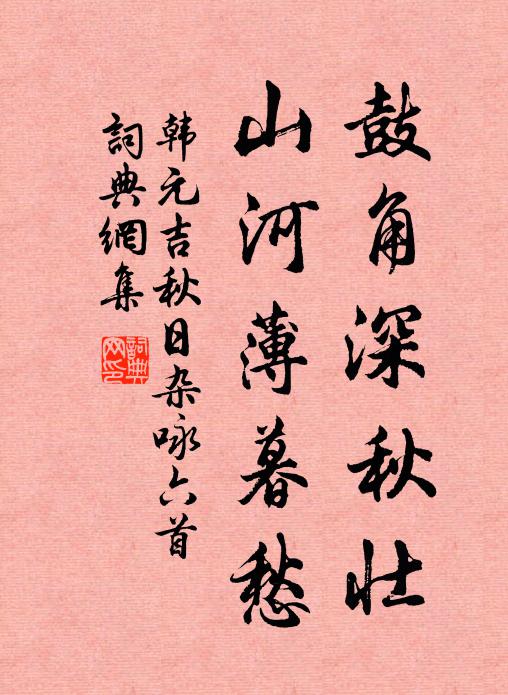 鼓角深秋壮
山河薄暮愁
韩元吉秋日杂咏六首
詞典網集
詞典网印